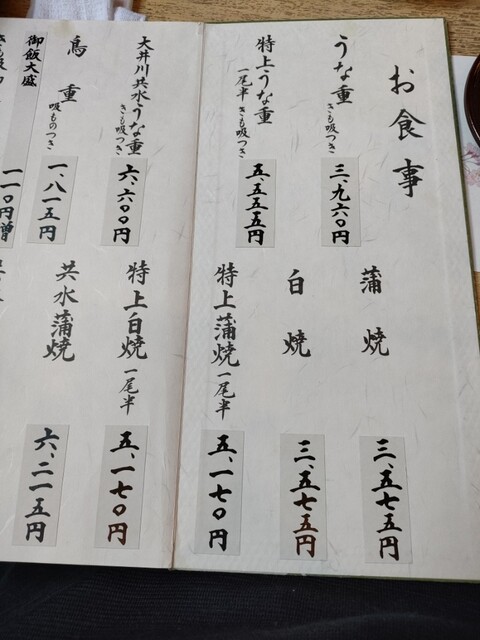 お食事
うな重
きも吸つき
三、九六〇円
特上うな重
一尾半 きも吸つき
五、五五五円
大井川共水うな重
きも吸つき
六、六〇〇円
鳥重
吸ものつき
一、八一五円
御飯大盛
一一〇円増
蒲焼
三、五七五円
白焼
三、五七五円
特上蒲焼 一尾半
五、一七〇円
特上白焼 一尾半
五、一七〇円
共水蒲焼
六、二一五円